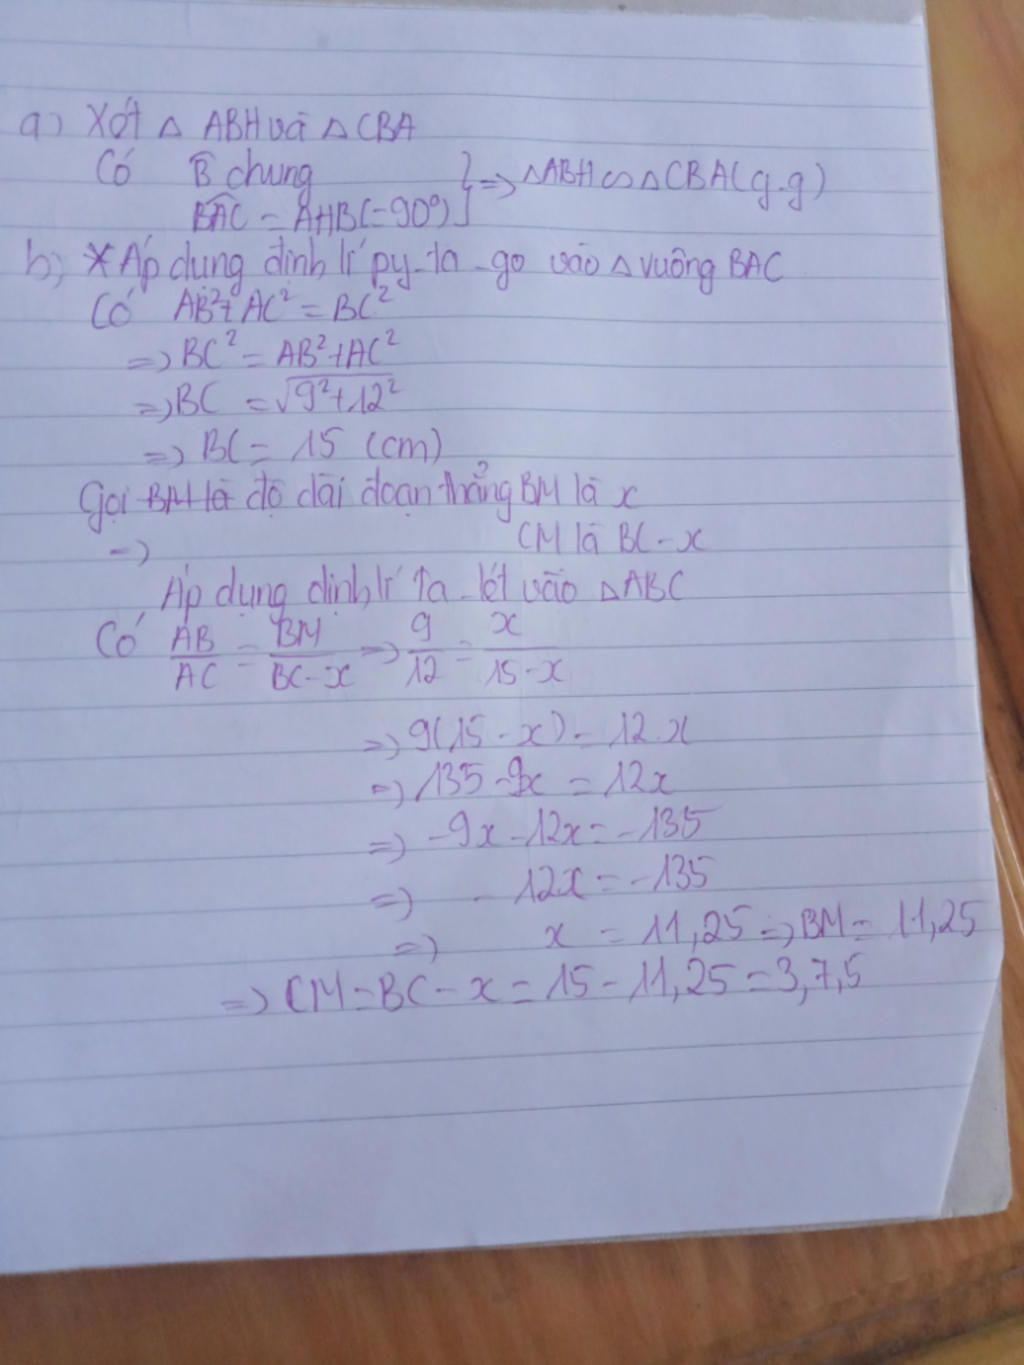 a) Xót △ ABH và △ CBA
Có B̂ chung
BAC = AHB(=90°) } => △ABH ∽ △CBA(g.g)
b) * Áp dụng định lí py-ta-go vào △ vuông BAC
Có AB²+AC² = BC²
=> BC² = AB²+AC²
=> BC = √9²+12²
=> BC = 15 (cm)
Gọi BM là độ dài đoạn thẳng BM là x
=> CM là BC - x
Áp dụng định lí Ta-lét vào △ABC
Có AB/AC = BM/BC-x => 9/12 = x/15-x
=> 9(15-x) = 12.x
=> 135-9x = 12x
=> -9x-12x = -135
=> -12x = -135
=> x = 11,25 => BM = 11,25
=> CM = BC - x = 15 - 11,25 = 3,7,5